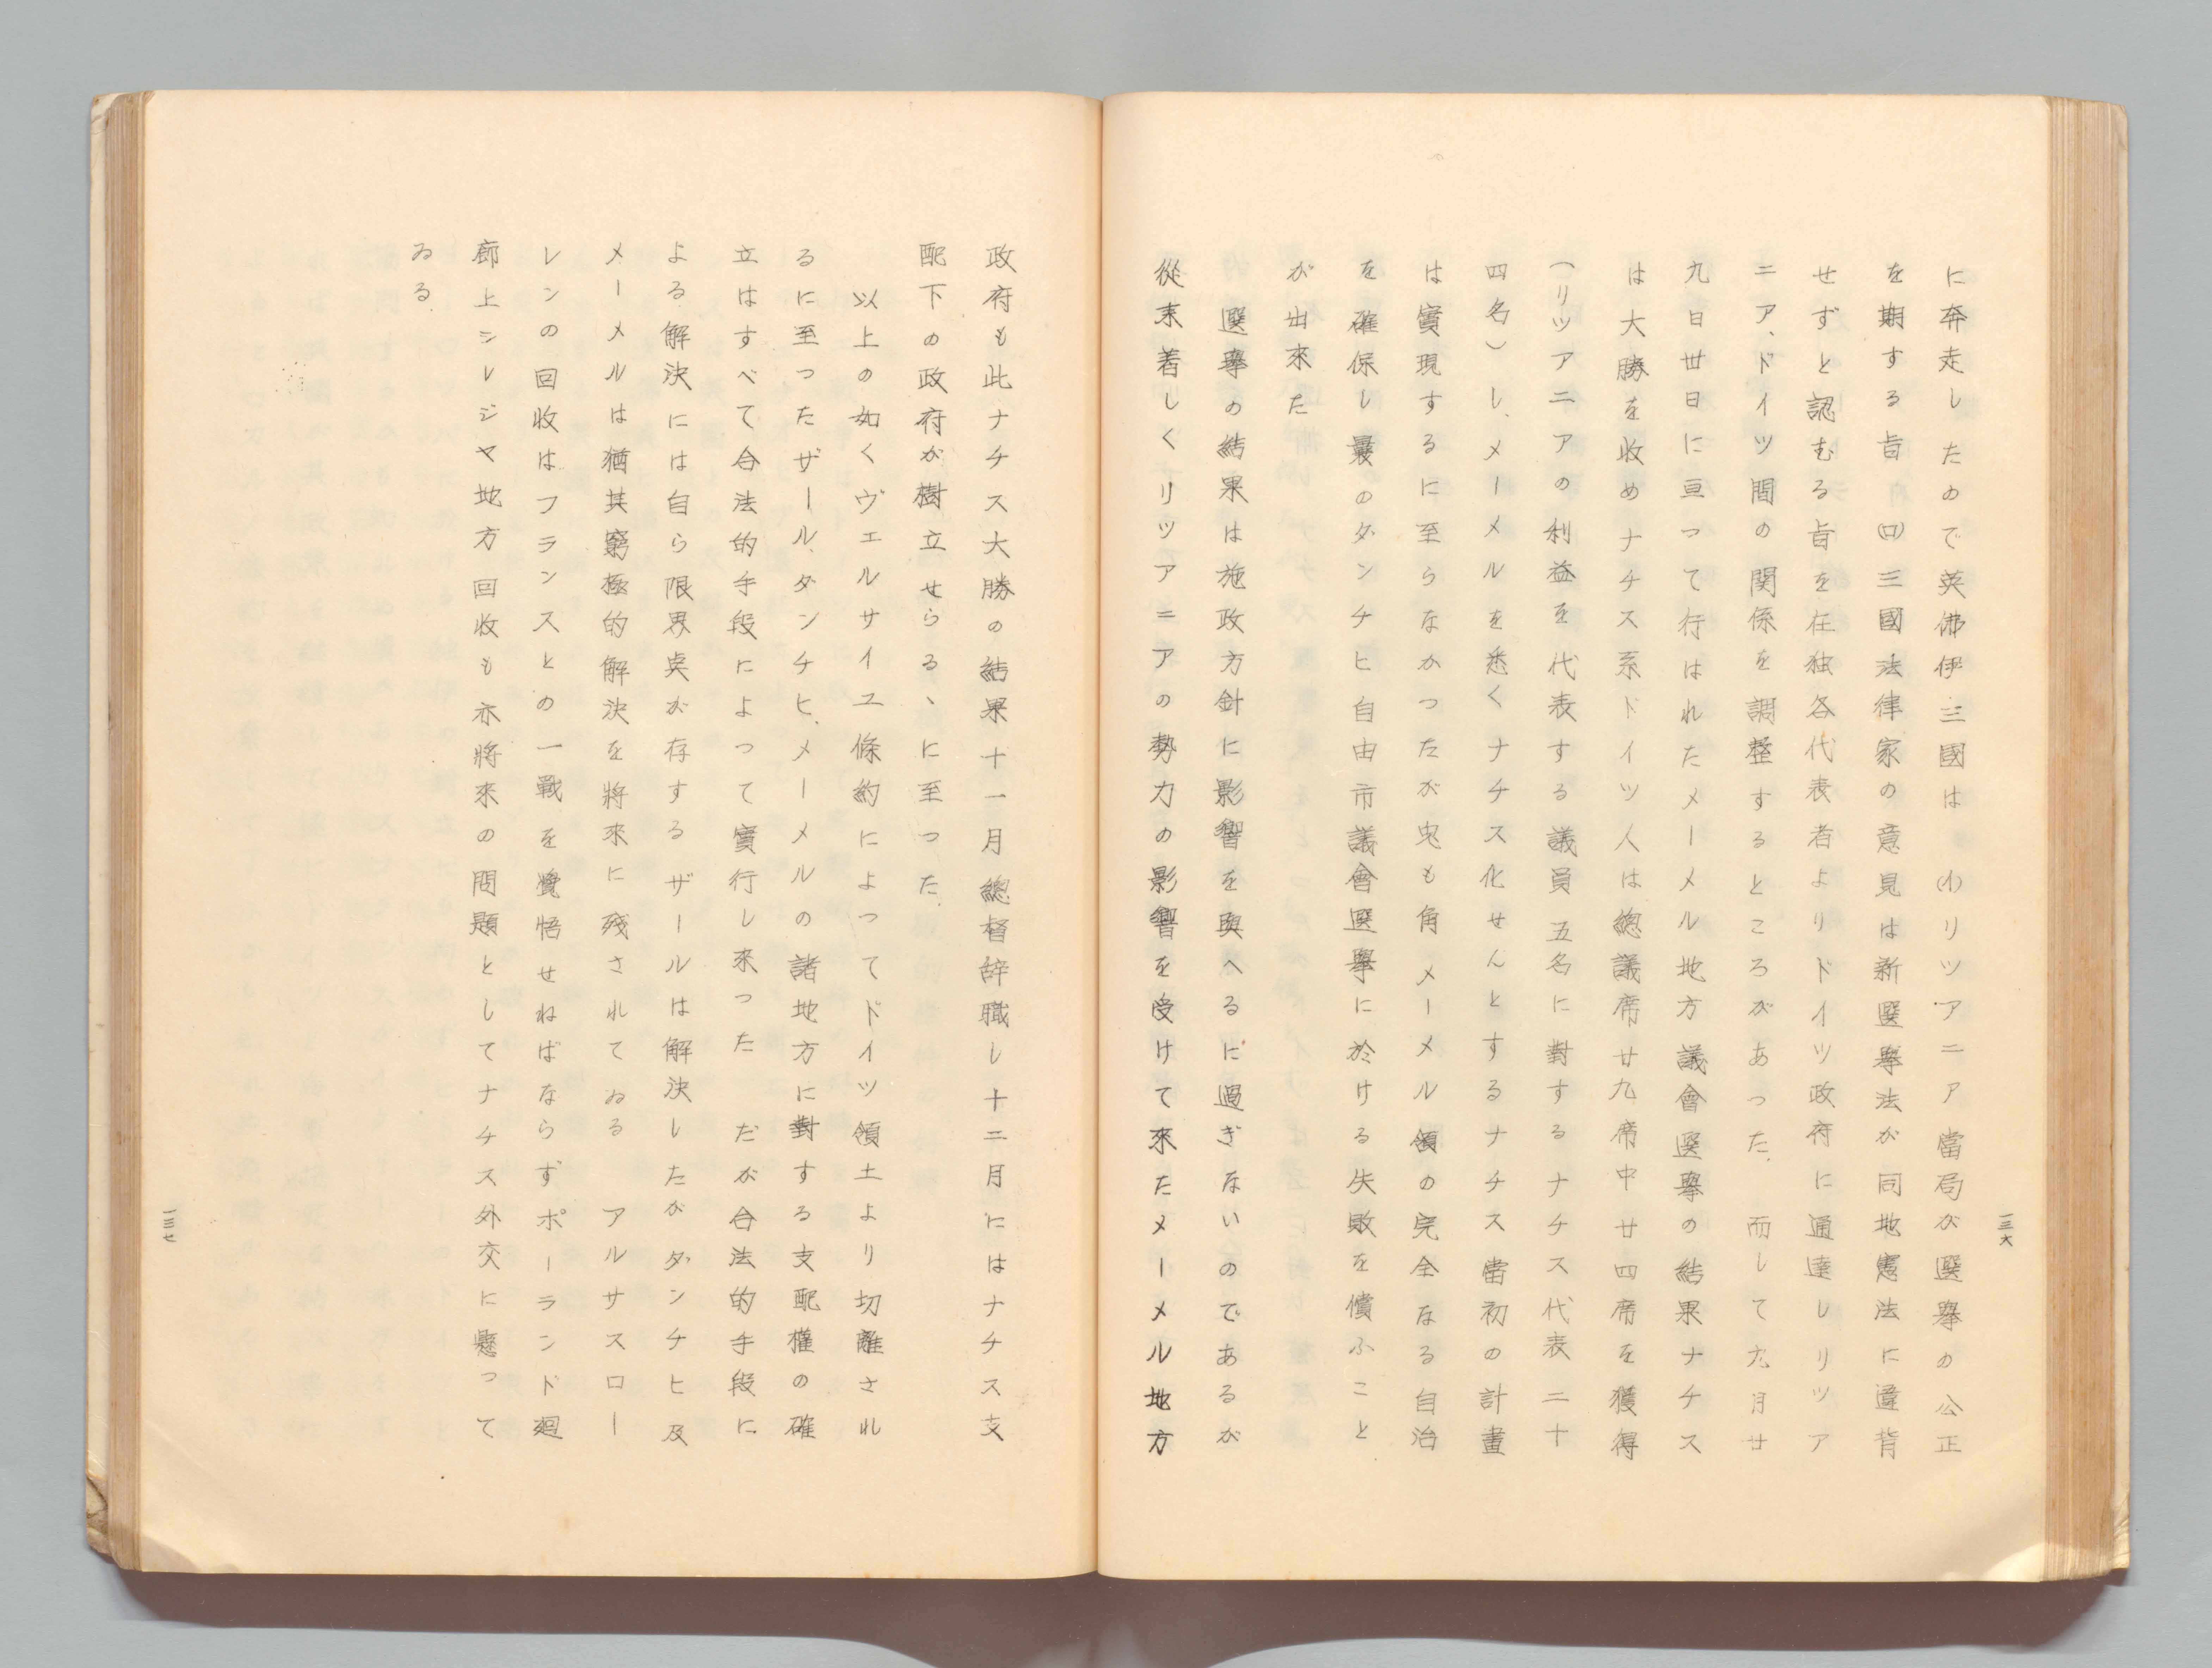 に奔走したので英佛伊三國は(イ)リツアニア當局が選擧の公正
を期する旨(ロ)三國法律家の意見は新選擧法が同地憲法に違背
せずと認むる旨を在独各代表者よりドイツ政府に通達しリツア
ニア、ドイツ間の関係を調整するところがあつた、而して九月廿
九日卅日に亘つて行はれたメーメル地方議會選擧の結果ナチス
は大勝を收めナチス系ドイツ人は總議席廿九席中廿四席を獲得
(リツアニアの利益を代表する議員五名に對するナチス代表二十
四名)し、メーメルを悉くナチス化せんとするナチス當初の計畫
は實現するに至らなかつたが兎も角メーメル領の完全なる自治
を確保し曩のダンチヒ自由市議會選擧に於ける失敗を償ふこと
が出來た
選擧の結果は施政方針に影響を與へるに過ぎないのであるが
從来着しくリツアニアの勢力の影響を受けて來たメーメル地方
一三六
政府も此ナチス大勝の結果十一月總督辞職し十二月にはナチス支
配下の政府が樹立せらるゝに至つた、
以上の如くヴェルサイユ條約によつてドイツ領土より切離され
るに至つたザール、ダンチヒ、メーメルの諸地方に對する支配權の確
立はすべて合法的手段によつて實行し来つた だが合法的手段に
よる解決には自ら限界奌が存する ザールは解決したがダンチヒ及
メーメルは猶其窮極的解決を將來に残されてゐる アルサスロー
レンの回收はフランスとの一戰を覺悟せねばならずポーランド廻
廊上シレジヤ地方回收も亦將來の問題としてナチス外交に懸つて
ゐる
一三七